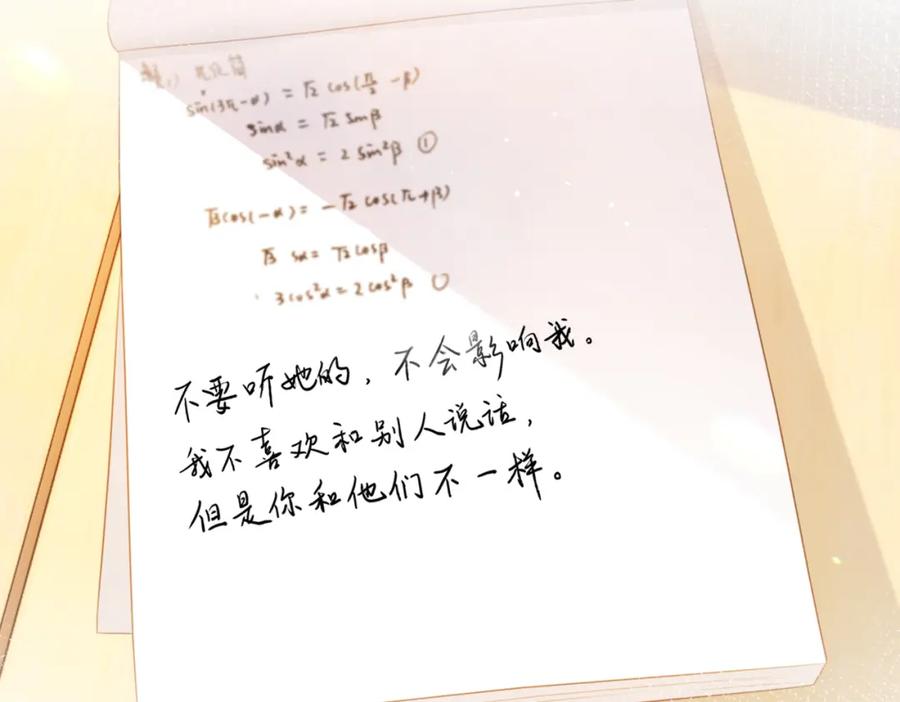 解:) 先化简
sin(3π-α) = √2 cos(π/2 -β)
sinα = √2 sinβ
sin²α = 2 sin²β ①
√3cos(-α) = -√2 cos(π+β)
√3 sα = √2cosβ
3cos²α = 2cos²β
不要听她的，不会影响我。
我不喜欢和别人说话，
但是你和他们不一样。